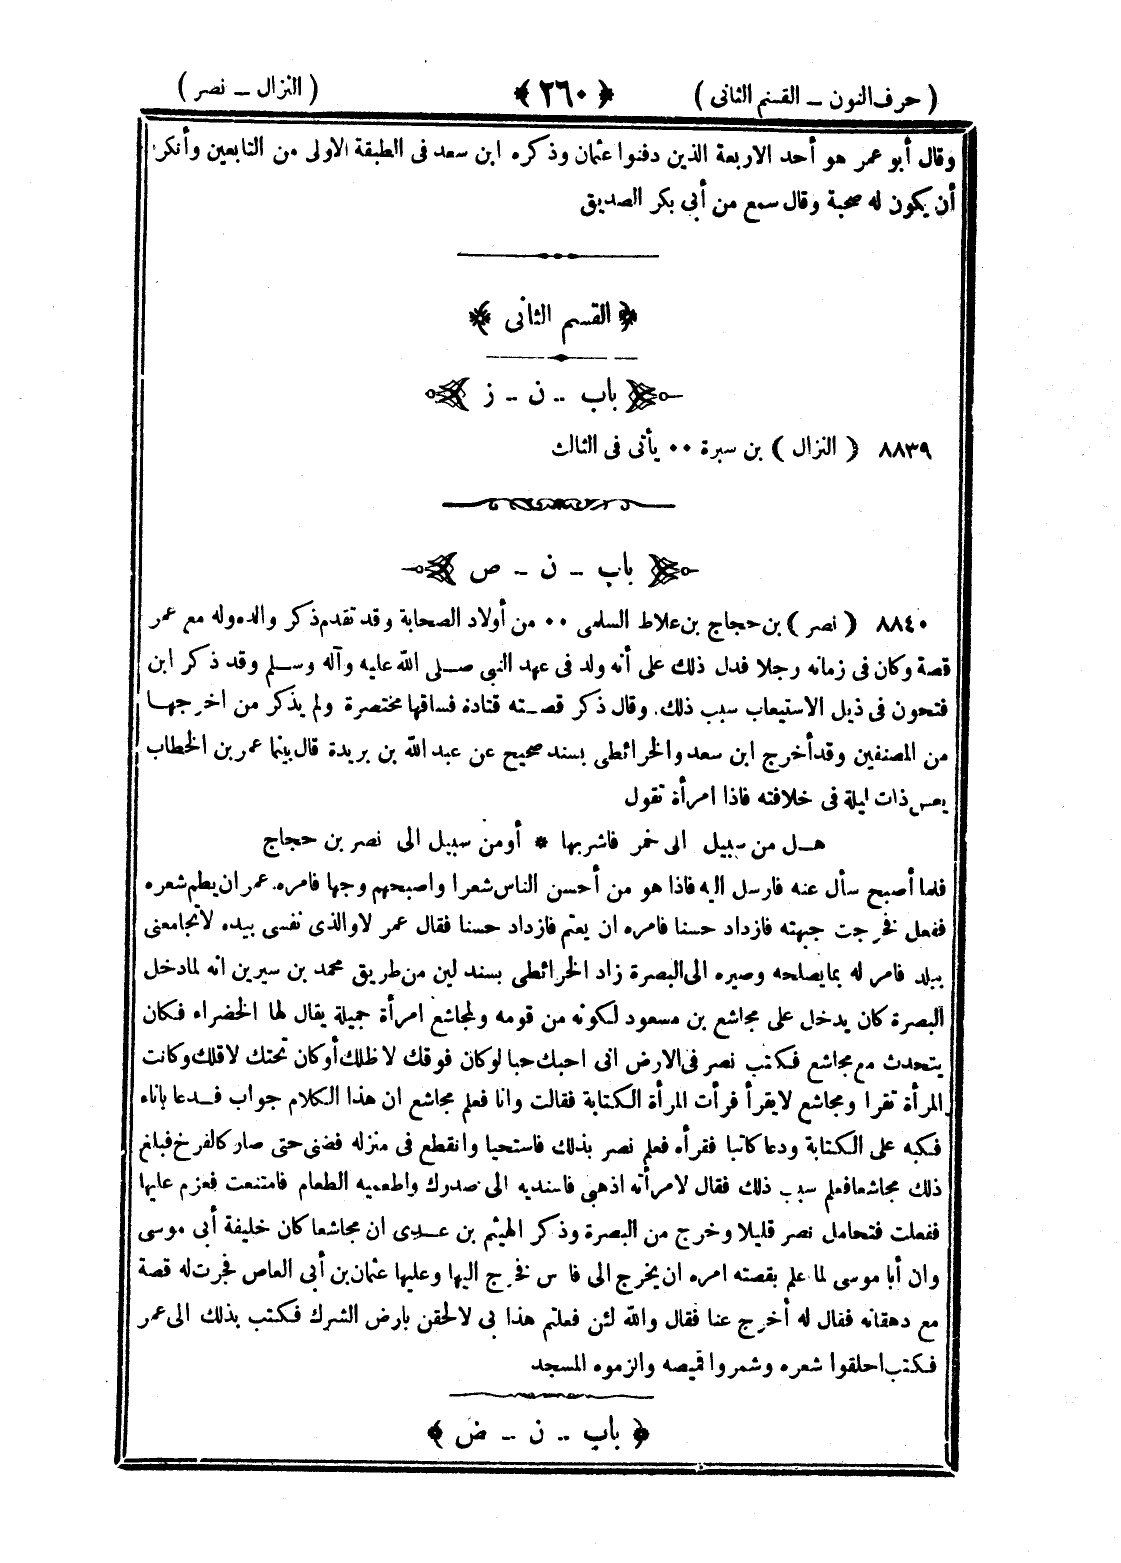 ( حرف النون ــ القسم الثانى )
﴿ ٢٦٠ ﴾
( النزال ــ نصر )
وقال أبو عمر هو أحد الاربعة الذين دفنوا عثمان وذكره ابن سعد فى الطبقة الاولى من التابعين وأنكر
أن يكون له صحبة وقال سمع من أبى بكر الصديق
﴿ القسم الثانى ﴾
باب ــ ن ــ ز
٨٨٣٩ ( النزال ) بن سبرة ٠٠ يأتى فى الثالث
باب ــ ن ــ ص
٨٨٤٠ ( نصر ) بن حجاج بن علاط السلمى ٠٠ من أولاد الصحابة وقد تقدم ذكر والده وله مع عمر
قصة وكان فى زمانه رجلا فدل ذلك على أنه ولد فى عهد النبى صلى الله عليه وآله وسلم وقد ذكر ابن
فتحون فى ذيل الاستيعاب سبب ذلك. وقال ذكر قصته قتادة فساقها مختصرة ولم يذكر من اخرجها
من المصنفين وقد أخرج ابن سعد والخرائطى بسند صحيح عن عبد الله بن بريدة قال بينما عمر بن الخطاب
يعس ذات ليلة فى خلافته فاذا امرأة تقول
هل من سبيل الى خمر فاشربها * أو من سبيل الى نصر بن حجاج
فلما أصبح سأل عنه فارسل اليه فاذا هو من أحسن الناس شعرا واصبحهم وجها فامره. عمر ان يطم شعره
ففعل فخرجت جبهته فازداد حسنا فامره ان يعتم فازداد حسنا فقال عمر لا والذى نفسى بيده لا تجامعنى
ببلد فامر له بما يصلحه وصيره الى البصرة زاد الخرائطى بسند لين من طريق محمد بن سيرين انه لما دخل
البصرة كان يدخل على مجاشع بن مسعود لكونه من قومه ولمجاشع امرأة جميلة يقال لها الخضراء فكان
يتحدث مع مجاشع فكتب نصر فى الارض انى احبك حبا لو كان فوقك لاظلك أو كان تحتك لاقلك وكانت
المرأة تقرا ومجاشع لا يقرأ فرأت المرأة الكتابة فقالت وانا فعلم مجاشع ان هذا الكلام جواب فدعا باناء
فكبه على الكتابة ودعا كاتبا فقرأه فعلم نصر بذلك فاستحيا وانقطع فى منزله فضنى حتى صار كالفرخ فبلغ
ذلك مجاشعا فعلم سبب ذلك فقال لامرأته اذهبى فاسنديه الى صدرك واطعميه الطعام فامتنعت فعزم عليها
ففعلت فتحامل نصر قليلا وخرج من البصرة وذكر الهيثم بن عدى ان مجاشعا كان خليفة أبى موسى
وان أبا موسى لما علم بقصته امره ان يخرج الى فارس فخرج اليها وعليها عثمان بن أبى العاص فجرت له قصة
مع دهقانه فقال له أخرج عنا فقال والله لئن فعلتم هذا بى لالحقن بارض الشرك فكتب بذلك الى عمر
فكتب احلقوا شعره وشمروا قميصه والزموه المسجد
﴿ باب ــ ن ــ ض ﴾